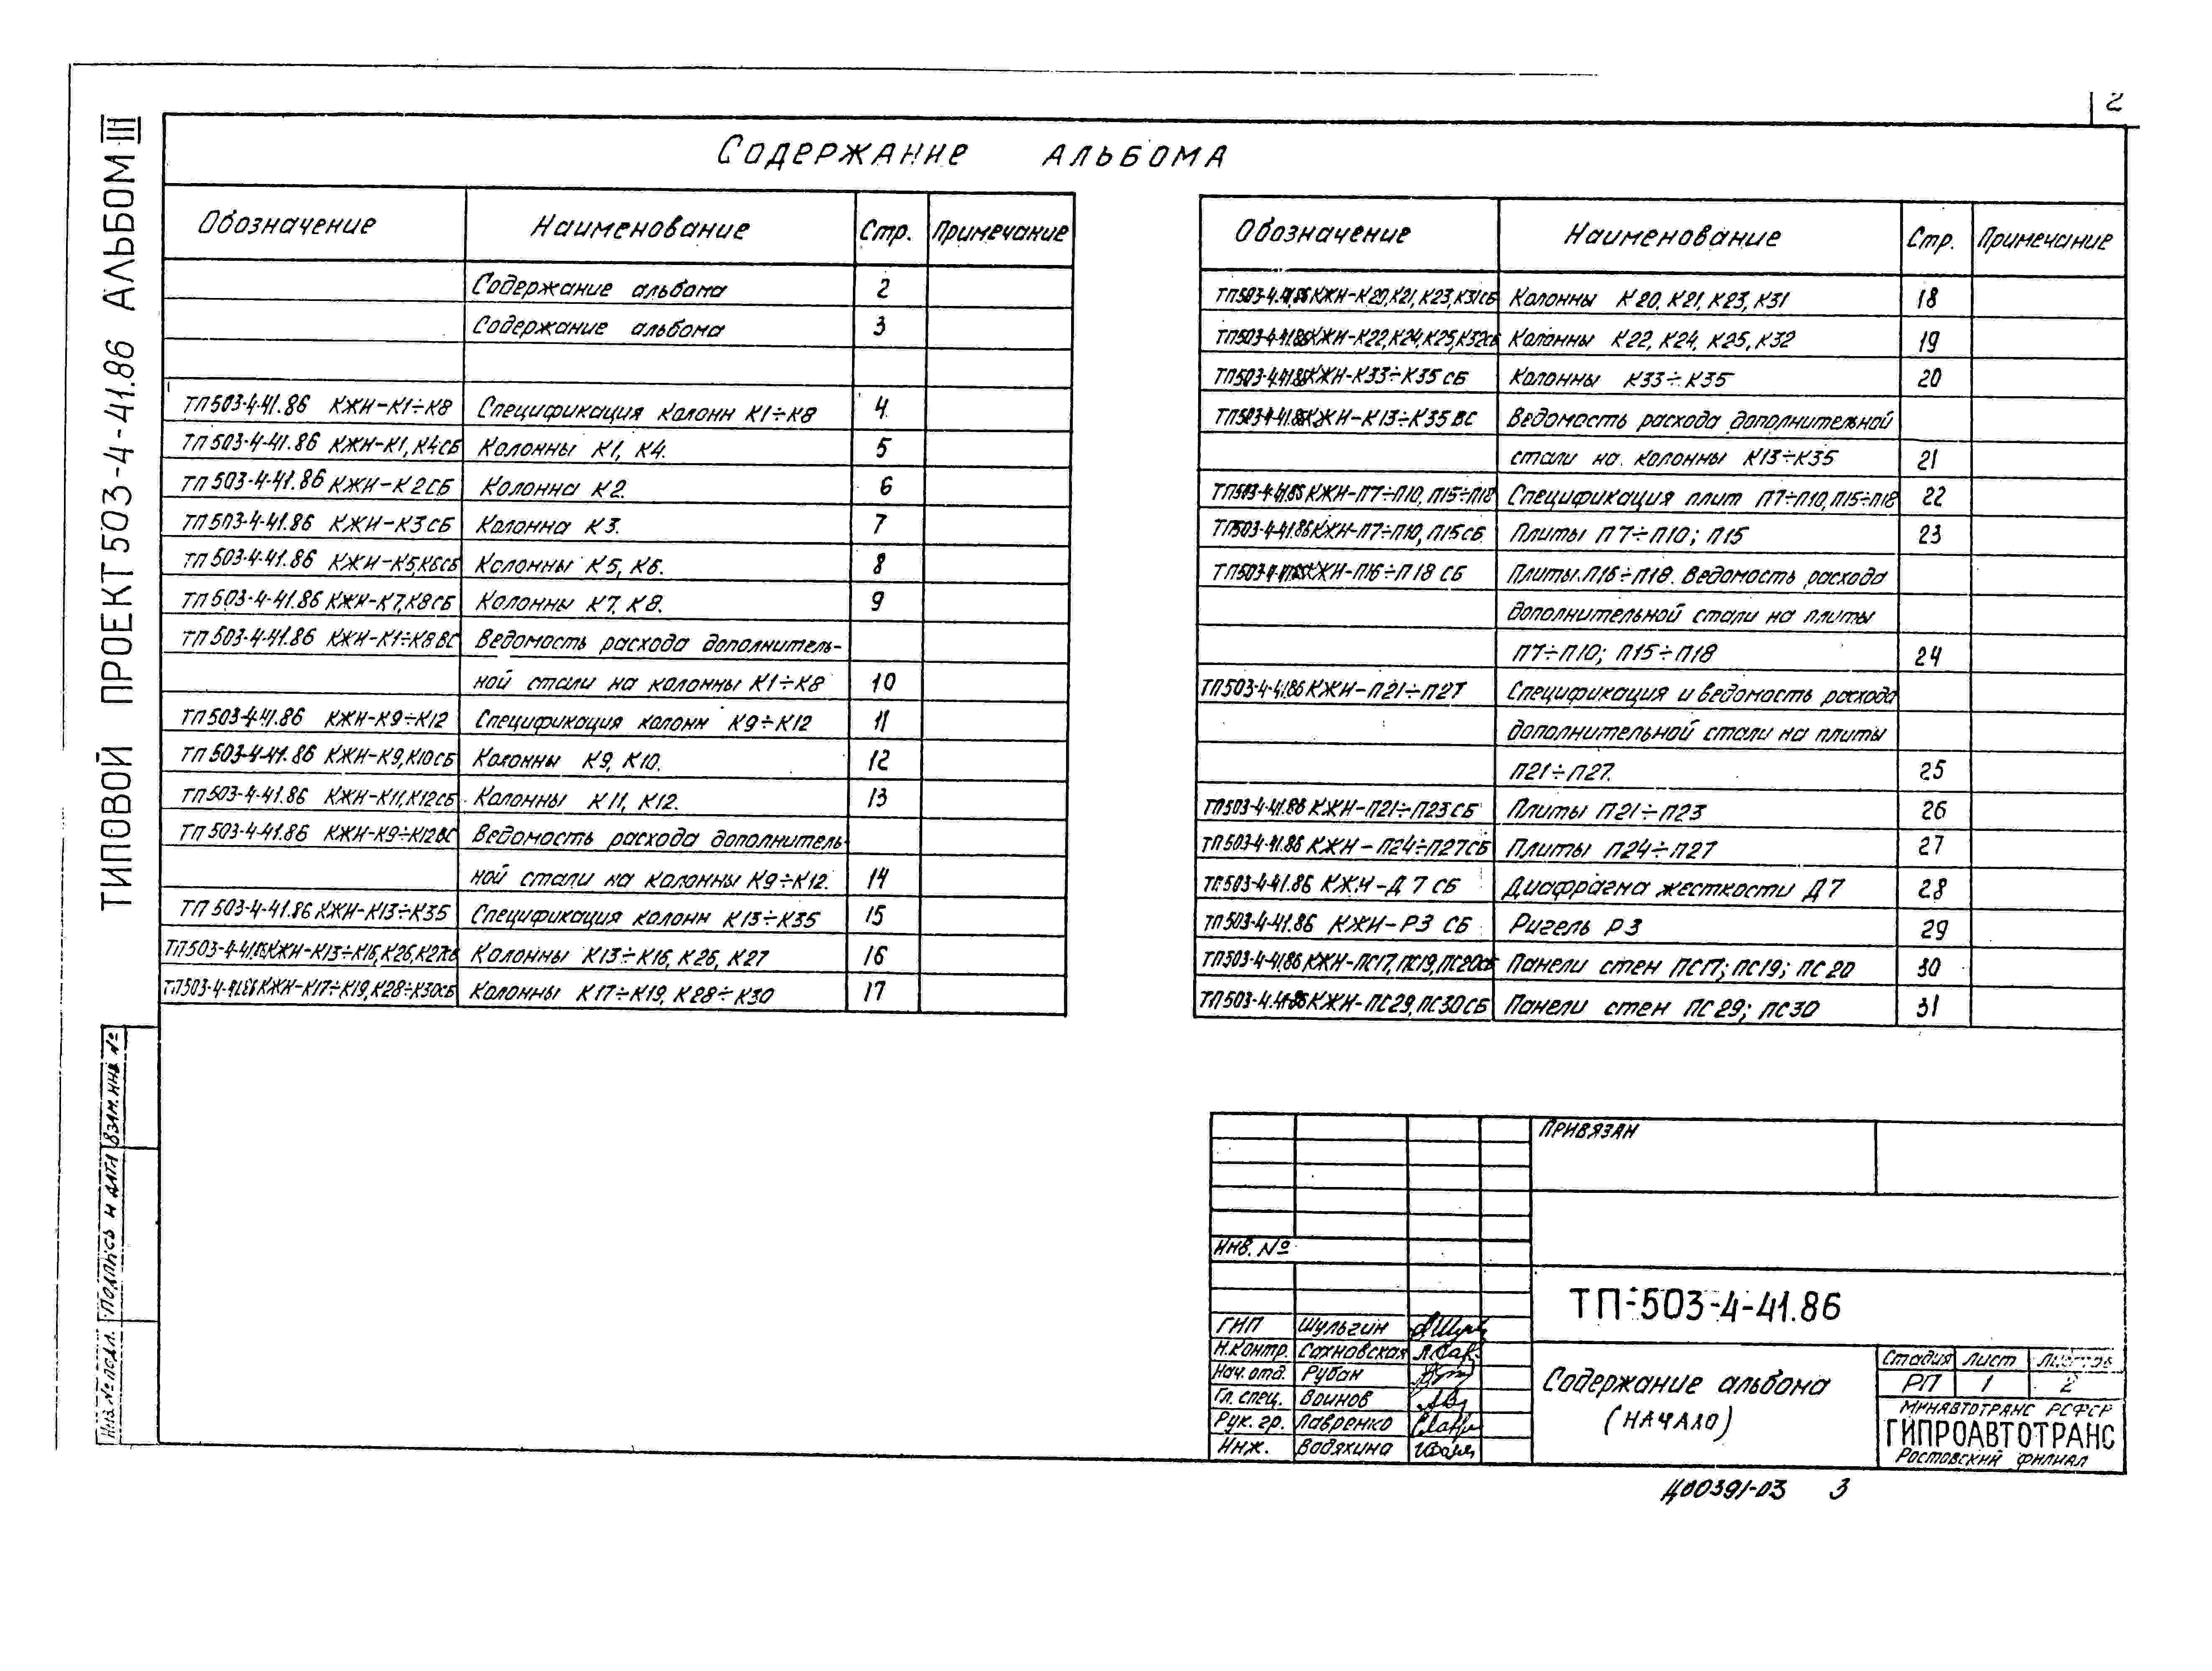 2
ТИПОВОЙ ПРОЕКТ 503-4-41.86 АЛЬБОМ III
СОДЕРЖАНИЕ АЛЬБОМА
Обозначение Наименование Стр. Примечание
Содержание альбома 2
Содержание альбома 3
ТП503-4-41.86 КЖИ-К1÷К8 Спецификация колонн К1÷К8 4
ТП 503-4-41.86 КЖИ-К1, К4СБ Колонны К1, К4. 5
ТП 503-4-41.86 КЖИ-К2СБ Колонна К2. 6
ТП 503-4-41.86 КЖИ-К3СБ Колонна К3. 7
ТП 503-4-41.86 КЖИ-К5,К6СБ Колонны К5, К6. 8
ТП 503-4-41.86 КЖИ-К7,К8СБ Колонны К7, К8. 9
ТП 503-4-41.86 КЖИ-К1÷К8ВС Ведомость расхода дополнитель-
ной стали на колонны К1÷К8 10
ТП 503-4-41.86 КЖИ-К9÷К12 Спецификация колонн К9÷К12 11
ТП 503-4-41.86 КЖИ-К9,К10СБ Колонны К9, К10. 12
ТП 503-4-41.86 КЖИ-К11,К12СБ Колонны К11, К12. 13
ТП 503-4-41.86 КЖИ-К9÷К12ВС Ведомость расхода дополнитель-
ной стали на колонны К9÷К12. 14
ТП 503-4-41.86 КЖИ-К13÷К35 Спецификация колонн К13÷К35 15
ТП503-4-41.86КЖИ-К13÷К16,К26,К27СБ Колонны К13÷К16, К26, К27 16
ТП503-4-41.86КЖИ-К17÷К19,К28÷К30СБ Колонны К17÷К19, К28÷К30 17
Обозначение Наименование Стр. Примечание
ТП503-4.41.86КЖИ-К20,К21,К23,К31СБ Колонны К20, К21, К23, К31 18
ТП503-4-41.86КЖИ-К22,К24,К25,К32СБ Колонны К22, К24, К25, К32 19
ТП503-4.41.86КЖИ-К33÷К35 СБ Колонны К33÷К35 20
ТП503-4-41.86КЖИ-К13÷К35 ВС Ведомость расхода дополнительной
стали на колонны К13÷К35 21
ТП503-4.41.86 КЖИ-П7÷П10, П15÷П18 Спецификация плит П7÷П10, П15÷П18 22
ТП503-4-41.86КЖИ-П7÷П10, П15СБ Плиты П7÷П10; П15 23
ТП503-4-41.86КЖИ-П16÷П18 СБ Плиты П16÷П18. Ведомость расхода
дополнительной стали на плиты
П7÷П10; П15÷П18 24
ТП503-4-41.86 КЖИ-П21÷П27 Спецификация и ведомость расхода
дополнительной стали на плиты
П21÷П27. 25
ТП503-4-41.86 КЖИ-П21÷П23СБ Плиты П21÷П23 26
ТП.503-4-41.86 КЖИ-П24÷П27СБ Плиты П24÷П27 27
ТП.503-4-41.86 КЖИ-Д7 СБ Диафрагма жесткости Д7 28
ТП 503-4-41.86 КЖИ-Р3 СБ Ригель Р3 29
ТП503-4-41.86 КЖИ-ПС17, ПС19, ПС20СБ Панели стен ПС17; ПС19; ПС20 30
ТП503-4.41.86КЖИ-ПС29, ПС30СБ Панели стен ПС29; ПС30 31
ВЗАМ. ИНВ №
ПОДПИСЬ И ДАТА
ИНВ.№ПОДЛ.
ПРИВЯЗАН
ИНВ. №
ТП-503-4-41.86
ГИП Шульгин
Н.контр. Сахновская
Нач. отд. Рубан
Гл. спец. Воинов
Рук. гр. Лавренко
Инж. Водяхина
Содержание альбома
(НАЧАЛО)
Стадия Лист Листов
РП 1 2
МИНАВТОТРАНС РСФСР
ГИПРОАВТОТРАНС
Ростовский филиал
Ц00391-03 3